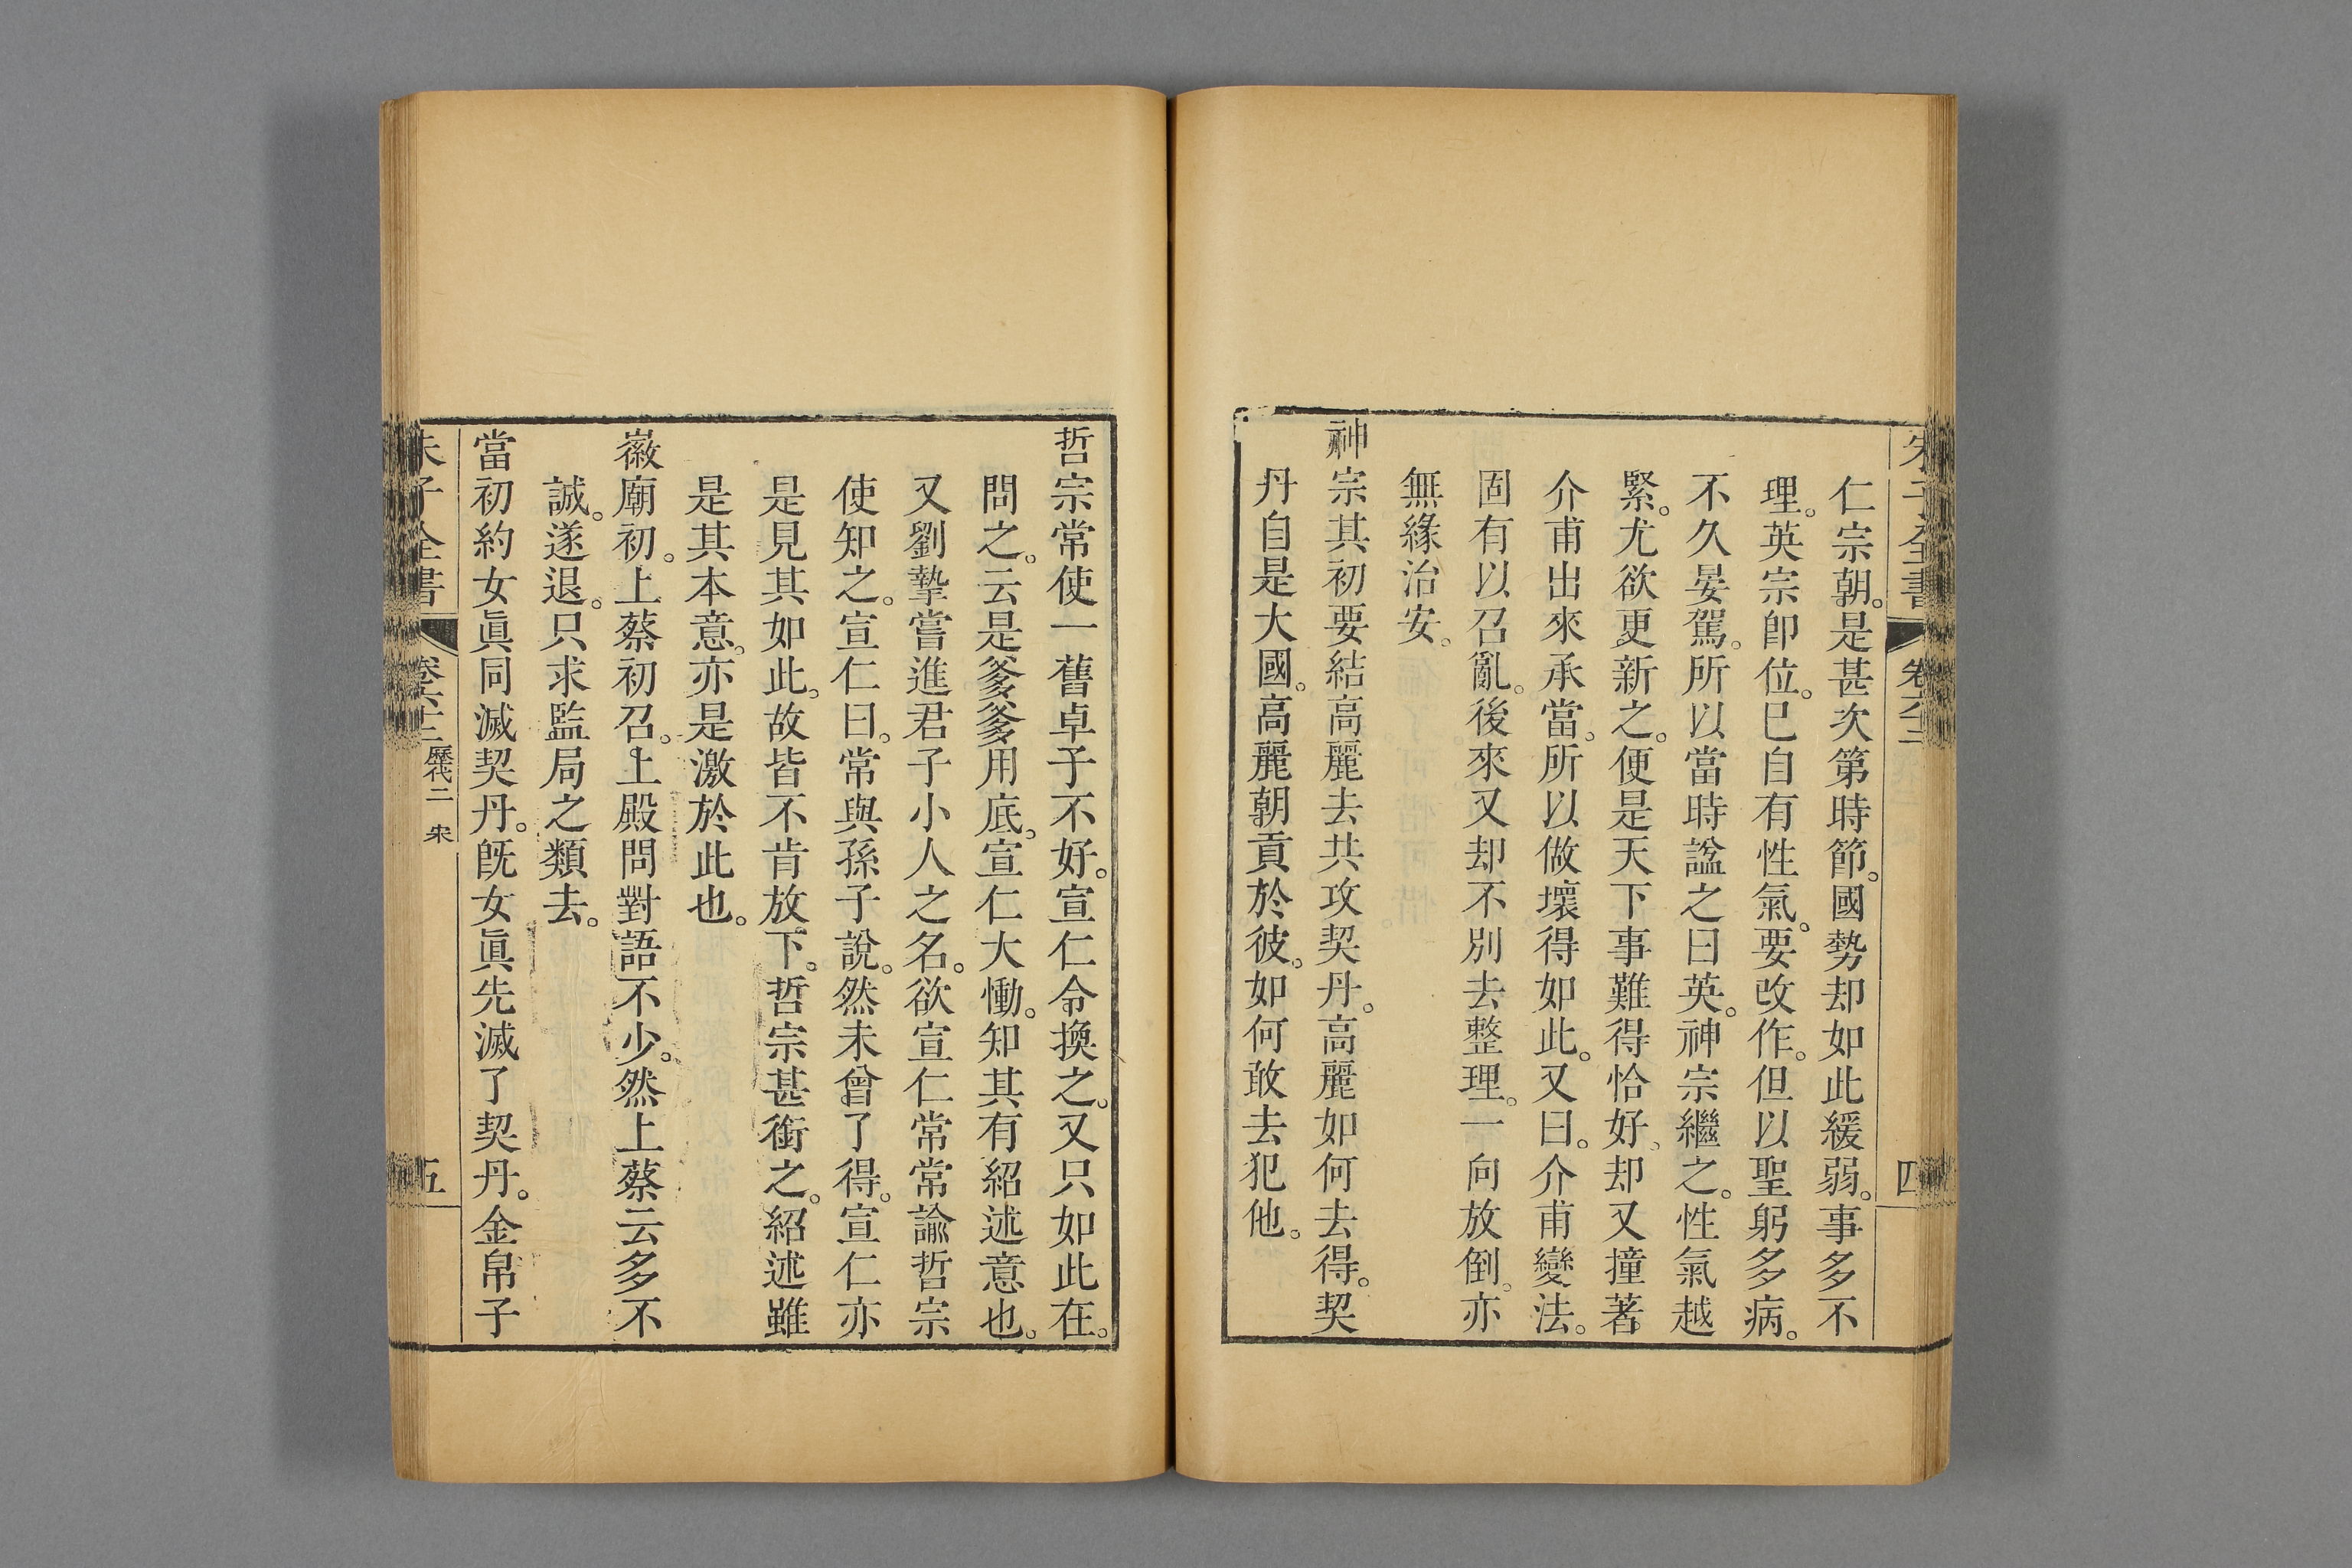 朱子全書 卷六十二 四
仁宗朝。是甚次第時節。國勢却如此緩弱。事多不
理。英宗卽位。已自有性氣。要改作。但以聖躬多病。
不久晏駕。所以當時諡之曰英。神宗繼之。性氣越
緊。尤欲更新之。便是天下事難得恰好。却又撞著
介甫出來承當。所以做壞得如此。又曰。介甫變法。
固有以召亂。後來又却不別去整理。一向放倒。亦
無緣治安。
神宗其初要結高麗去共攻契丹。高麗如何去得。契
丹自是大國。高麗朝貢於彼。如何敢去犯他。
哲宗常使一舊卓子不好。宣仁令換之。又只如此在。
問之。云是爹爹用底。宣仁大慟。知其有紹述意也。
又劉摯嘗進君子小人之名。欲宣仁常常諭哲宗
使知之。宣仁曰。常與孫子說。然未曾了得。宣仁亦
是見其如此。故皆不肯放下。哲宗甚銜之。紹述雖
是其本意。亦是激於此也。
徽廟初。上蔡初召。上殿問對語不少。然上蔡云多不
誠。遂退。只求監局之類去。
當初約女眞同滅契丹。旣女眞先滅了契丹。金帛子
朱子全書 卷六十二 歷代二 宋 五